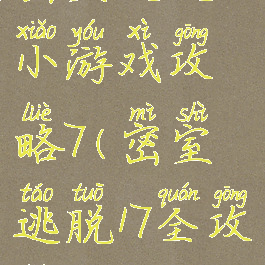 xiǎo yóu xì gōng
小游戏攻
lüè mì shì
略7(密室
táo tuō quán gōng
逃脱17全攻